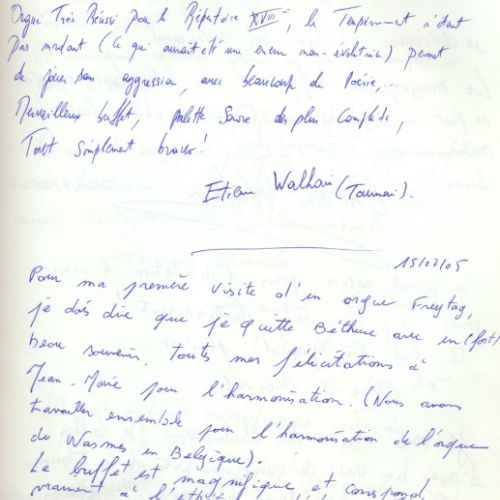 Orgue Très Réussi pour le Répertoire XVIIIe, le Tempérament n'étant
pas mordant (ce qui aurait été une erreur non-évolutrice) permet
de jouer sans aggression, avec beaucoup de Poésie,...
Merveilleux buffet, palette sonore des plus complète,
Tout simplement bravo!
Etienne Walhain (Tournai).
15/07/05
Pour ma première visite d'un orgue Freytag,
je dois dire que je quitte Béthune avec un (fort)
beau souvenir. Toutes mes félicitations à
Jean-Marie pour l'harmonisation. (Nous avons
travailler ensemble pour l'harmonisation de l'orgue
de Wasmes en Belgique).
Le buffet est magnifique et correspond
vraiment à l'esth